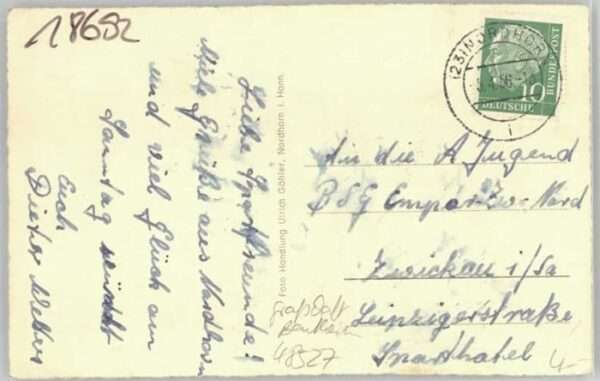 18652
Liebe Sportfreunde!
Viele Grüße aus Nordhorn
und viel Glück am
Sonntag wünscht
Euch
Dieter
Foto Handlung Ulrich Göhler, Nordhorn i. Hann.
(23) NORDHORN
DEUTSCHE
BUNDESPOST
10
An die A Jugend
BSG Empor-Zw.-Nord
Zwickau i/Sa
Leipzigerstraße
Grafschaft
Bentheim
48527
4,-